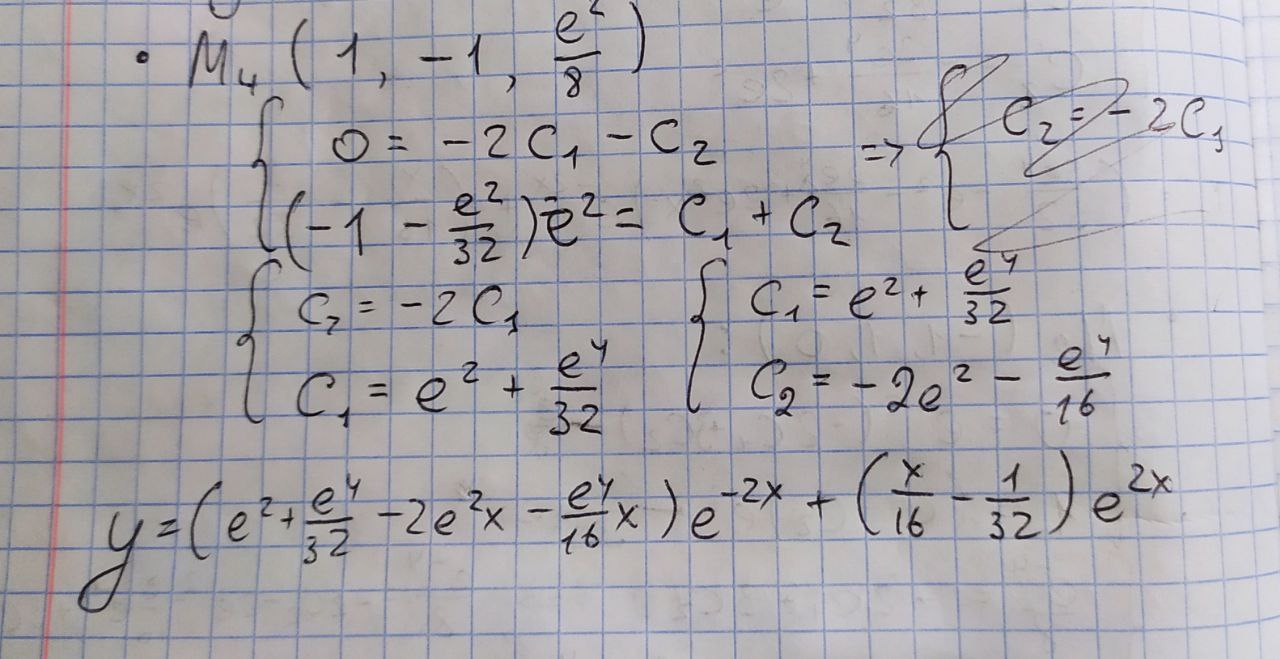 • M₄ (1, -1, e²/8)
{ 0 = -2C₁ - C₂ => { C₂ = -2C₁
{ (-1 - e²/32)e² = C₁ + C₂
{ C₂ = -2C₁ { C₁ = e² + e⁴/32
{ C₁ = e² + e⁴/32 { C₂ = -2e² - e⁴/16
y = (e² + e⁴/32 - 2e²x - e⁴/16 x) e^(-2x) + (x/16 - 1/32) e^(2x)